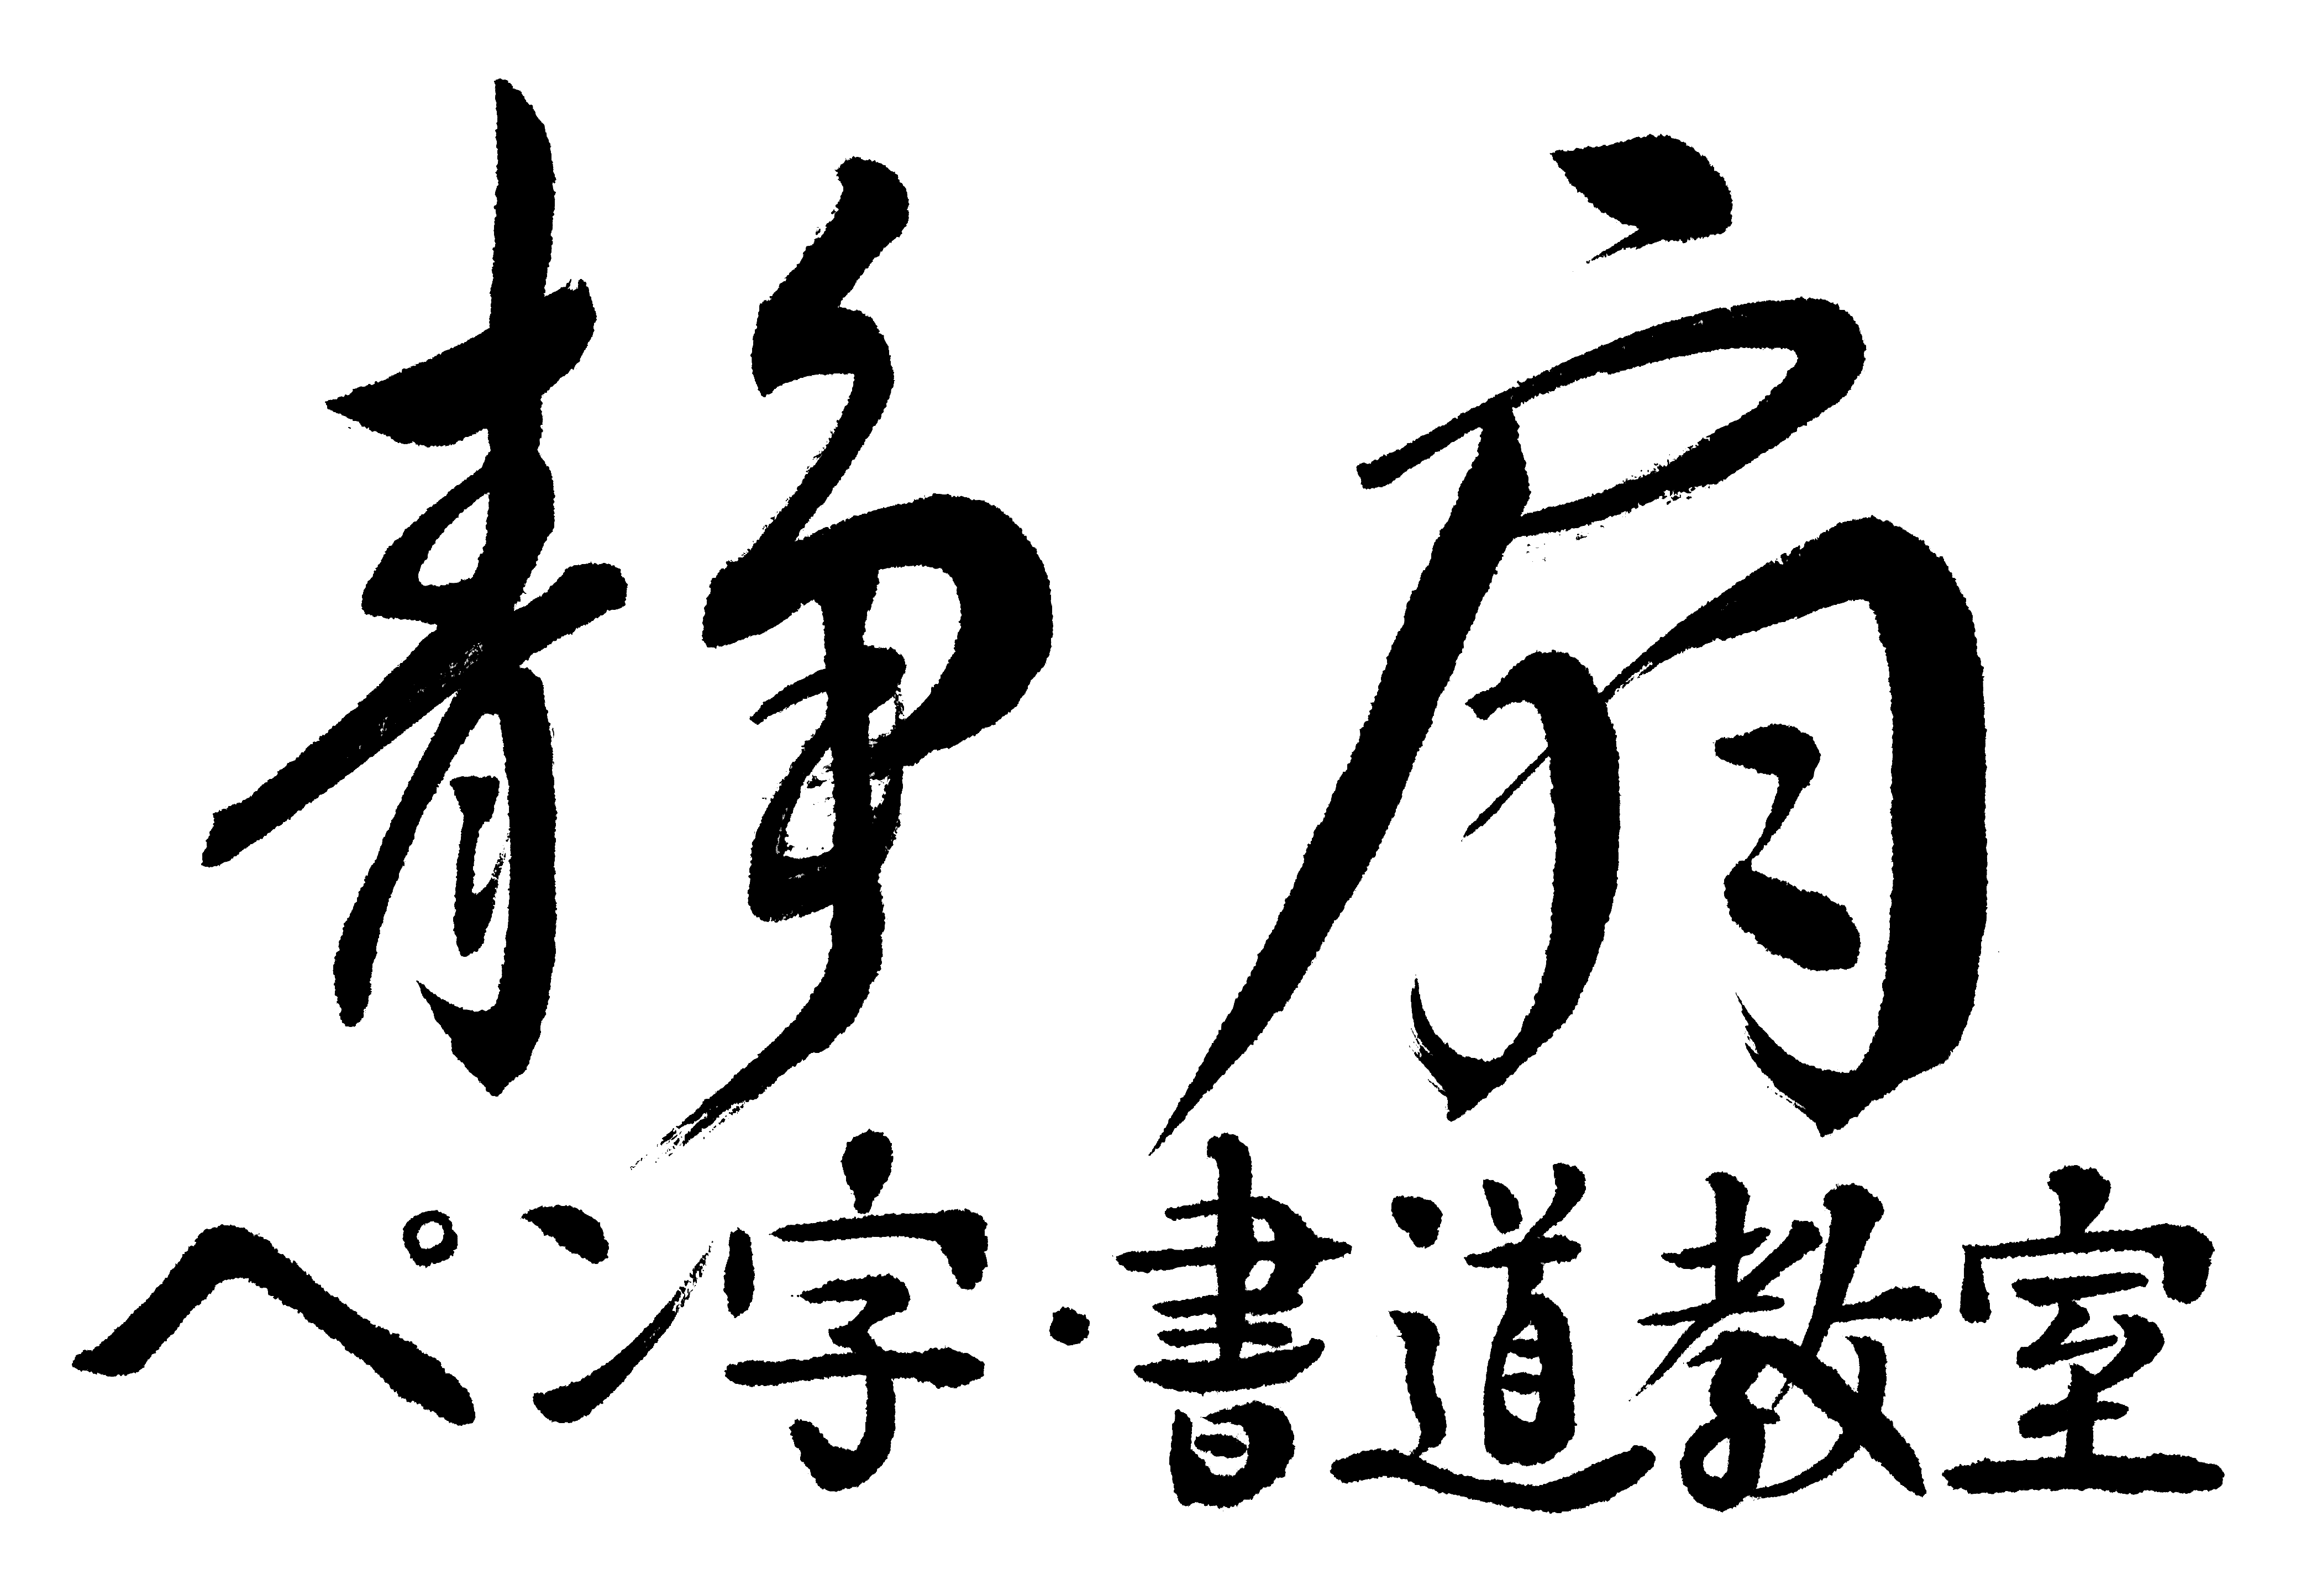 静扇
ペン字・書道教室